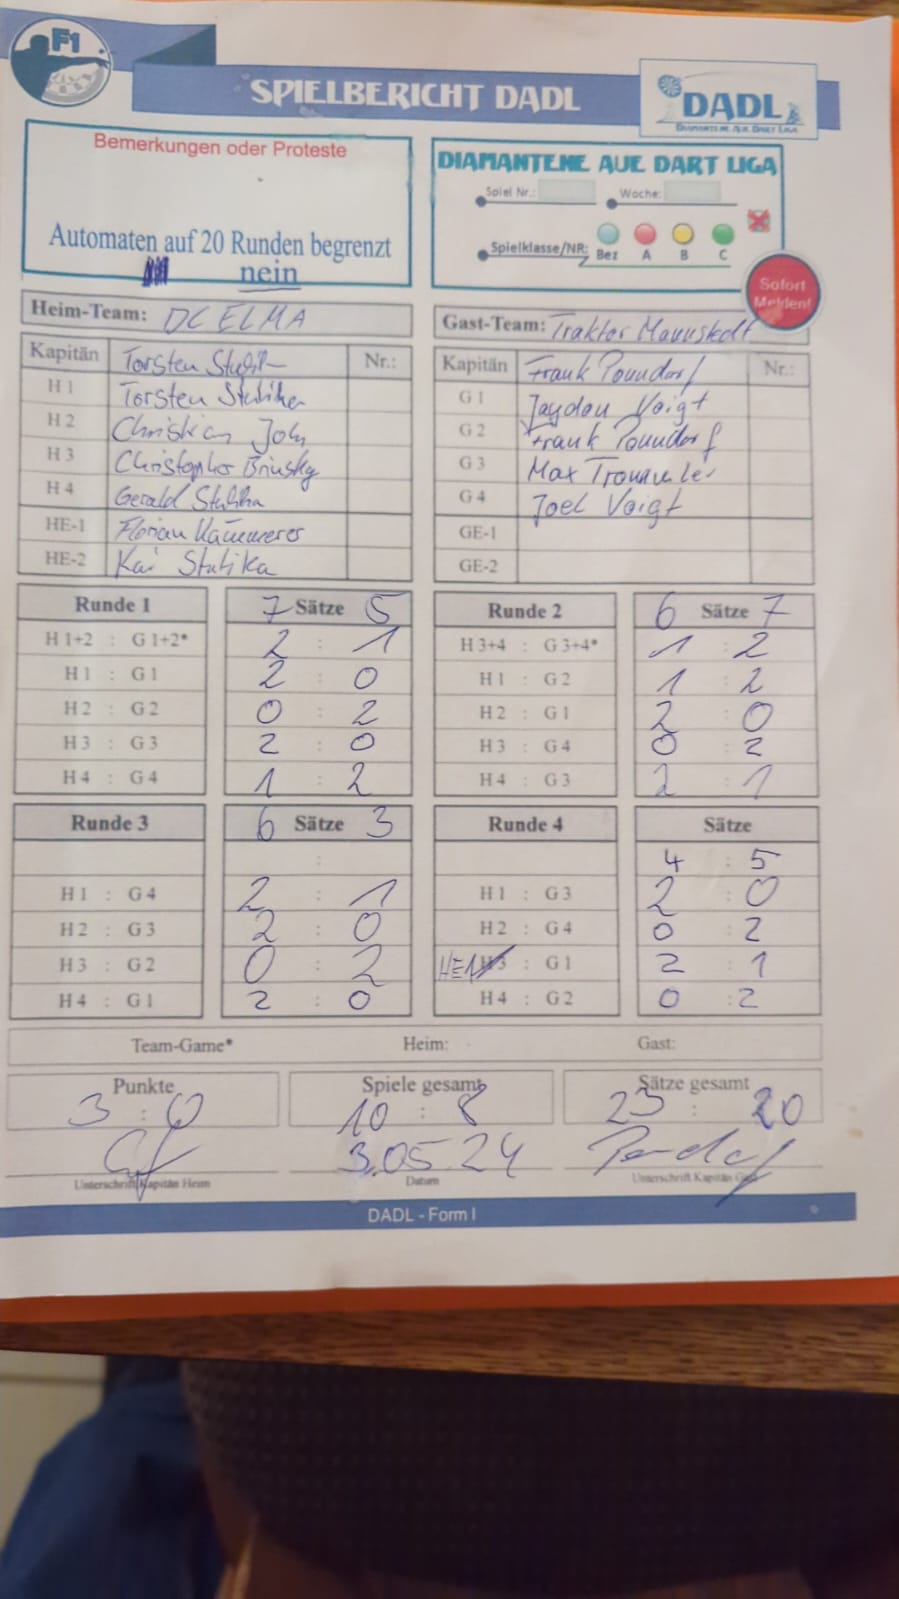 F1
SPIELBERICHT DADL
DADL
DIAMANTENE AUE DART LIGA
Bemerkungen oder Proteste
Automaten auf 20 Runden begrenzt
nein
DIAMANTENE AUE DART LIGA
Spiel Nr.: Woche:
Spielklasse/NR: Bez A B C
Sofort
Melden!
Heim-Team: DC ELMA
Gast-Team: Traktor Mannstedt
Kapitän Torsten Nr.:
H 1 Torsten Stulika
H 2 Christian John
H 3 Christopher Brinsky
H 4 Gerald Stulika
HE-1 Florian Kämmerer
HE-2 Kai Stulika
Kapitän Frank Poundorf Nr.:
G 1 Jaydon Voigt
G 2 Frank Poundorf
G 3 Max
G 4 Joel Voigt
GE-1
GE-2
Runde 1 7 Sätze 5
H 1+2 : G 1+2* 2 : 1
H 1 : G 1 2 : 0
H 2 : G 2 0 : 2
H 3 : G 3 2 : 0
H 4 : G 4 1 : 2
Runde 2 6 Sätze 7
H 3+4 : G 3+4* 1 : 2
H 1 : G 2 1 : 2
H 2 : G 1 2 : 0
H 3 : G 4 0 : 2
H 4 : G 3 2 : 1
Runde 3 6 Sätze 3
:
H 1 : G 4 2 : 1
H 2 : G 3 2 : 0
H 3 : G 2 0 : 2
H 4 : G 1 2 : 0
Runde 4 Sätze
4 : 5
H 1 : G 3 2 : 0
H 2 : G 4 0 : 2
HE1 H 3 : G 1 2 : 1
H 4 : G 2 0 : 2
Team-Game* Heim: Gast:
Punkte Spiele gesamt Sätze gesamt
3 : 0 10 : 8 23 : 20
3.05.24
Unterschrift Kapitän Heim Datum Unterschrift Kapitän Gast
DADL - Form I